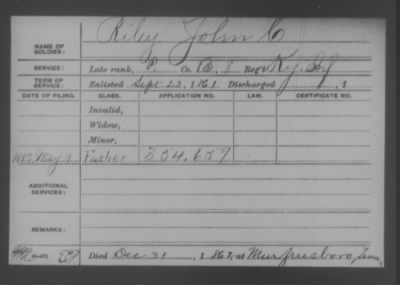 Riley John C
NAME OF SOLDIER:
SERVICE: Late rank, P. Co. B, 8 Reg't Ky. Inf
TERM OF SERVICE: Enlisted Sept 23, 1861 Discharged , 1
DATE OF FILING. CLASS. APPLICATION NO. LAW. CERTIFICATE NO.
Invalid,
Widow,
Minor,
1887, May 9 Father 354.659
ADDITIONAL SERVICES:
REMARKS:
Died Dec 31, 1862, at Murfreesboro Tenn,